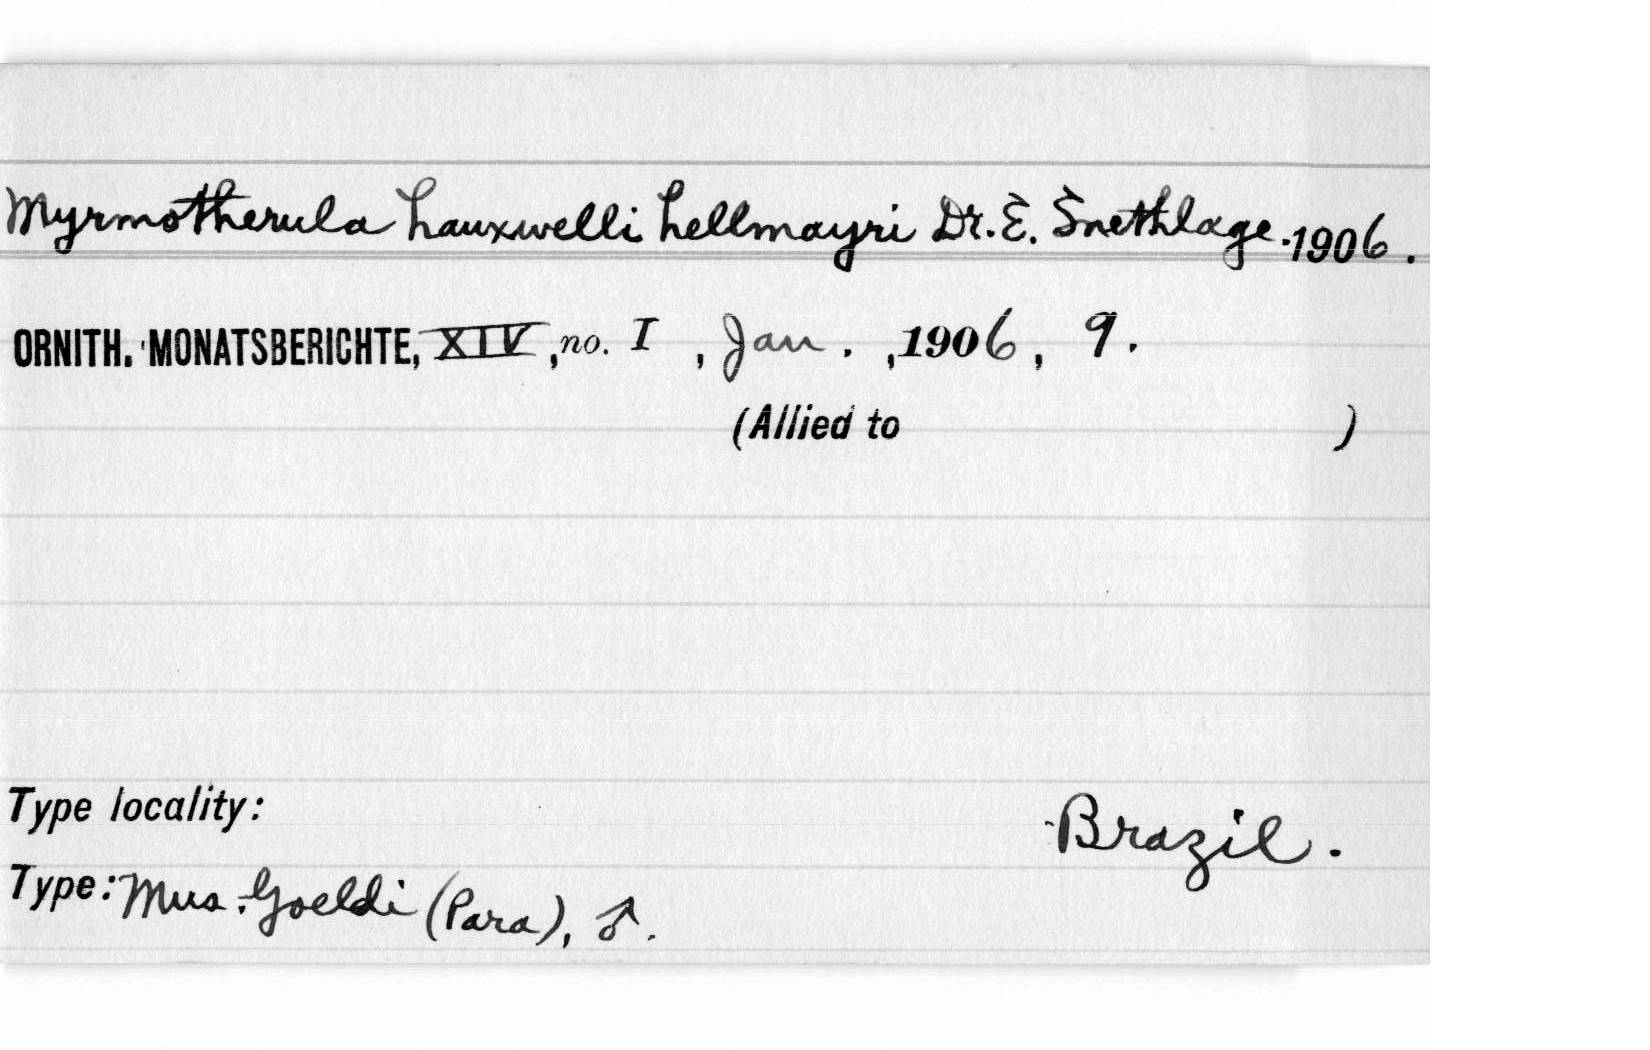 Myrmotherula hauxwelli hellmayri Dr. E. Snethlage. 1906.
ORNITH. MONATSBERICHTE, XIV, no. I, Jan., 1906, 9.
(Allied to )
Type locality:
Brazil.
Type: Mus. Goeldi (Para), ♂.